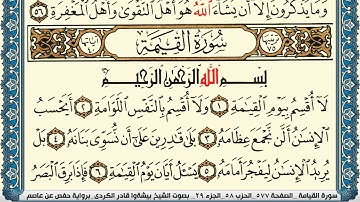 وَمَا يَذْكُرُونَ إِلَّا أَن يَشَاءَ اللَّهُ هُوَ أَهْلُ التَّقْوَىٰ وَأَهْلُ الْمَغْفِرَةِ ٥٦
سُورَةُ الْقِيَامَةِ
بِسْمِ اللَّهِ الرَّحْمَٰنِ الرَّحِيمِ
لَا أُقْسِمُ بِيَوْمِ الْقِيَامَةِ ١ وَلَا أُقْسِمُ بِالنَّفْسِ اللَّوَّامَةِ ٢ أَيَحْسَبُ
الْإِنسَانُ أَلَّن نَّجْمَعَ عِظَامَهُ ٣ بَلَىٰ قَادِرِينَ عَلَىٰ أَن نُّسَوِّيَ بَنَانَهُ ٤ بَلْ
يُرِيدُ الْإِنسَانُ لِيَفْجُرَ أَمَامَهُ ٥ يَسْأَلُ أَيَّانَ يَوْمُ الْقِيَامَةِ ٦ فَإِذَا بَرِقَ الْبَصَرُ
سورة القيامة _ الصفحة ٥٧٧ _ الحزب ٥٨ _ الجزء ٢٩ _ بصوت الشيخ بيشةوا قادر الكردي _ برواية حفص عن عاصم